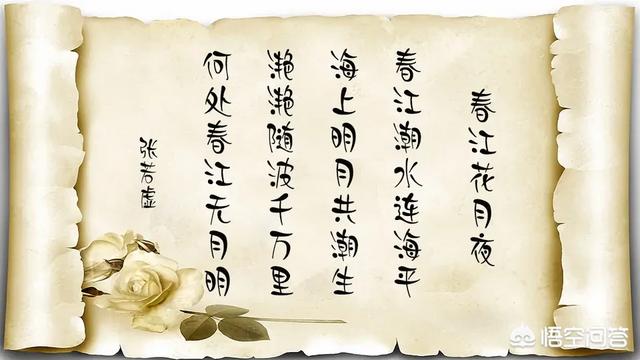 春江花月夜
春江潮水连海平
海上明月共潮生
滟滟随波千万里
何处春江无月明
张若虚
悟空问答